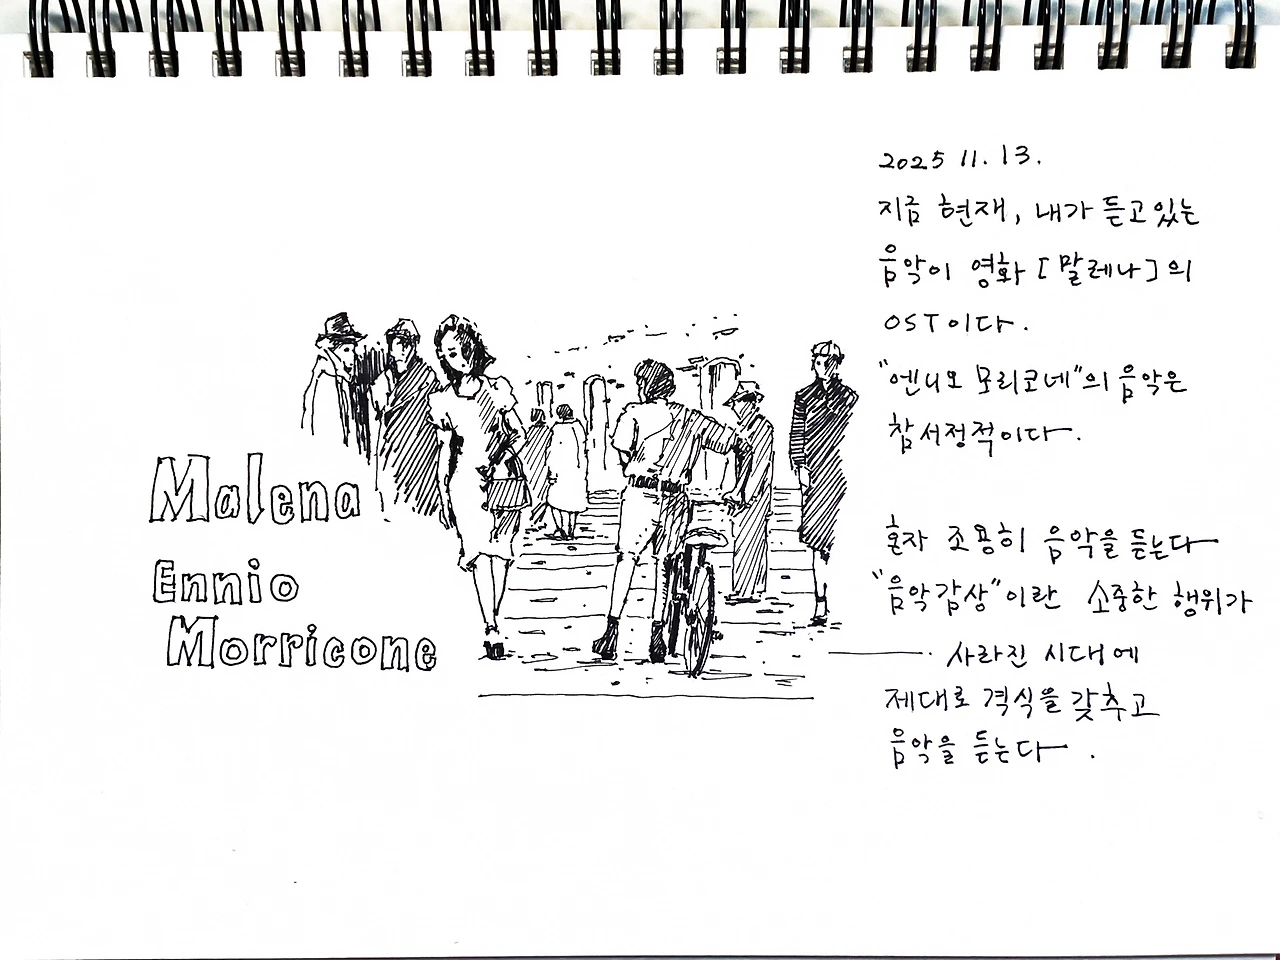 Malena
Ennio
Morricone
2025 11. 13.
지금 현재, 내가 듣고있는
음악이 영화 [말레나]의
OST이다.
"엔니오 모리코네"의 음악은
참 서정적이다.
혼자 조용히 음악을 듣는다
"음악감상"이란 소중한 행위가
사라진 시대에
제대로 격식을 갖추고
음악을 듣는다.